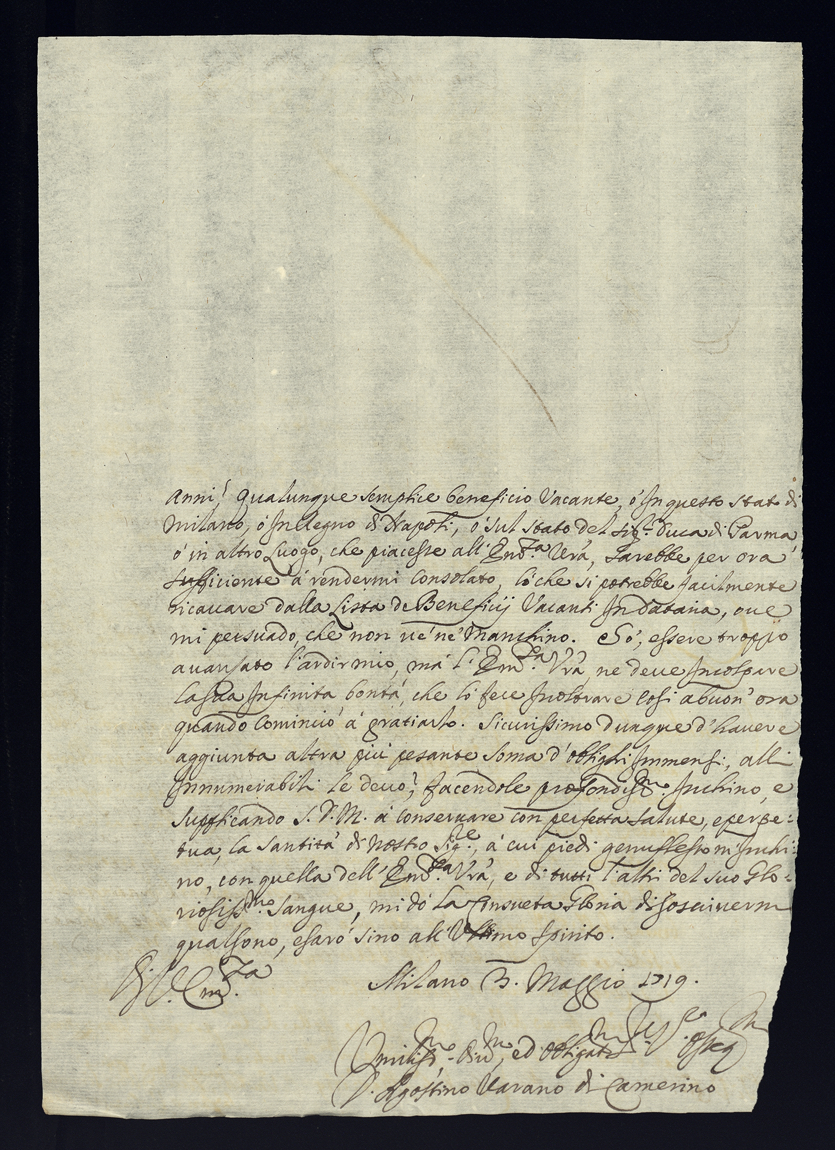 Anni? Qualunque semplice beneficio Vacante, ó In questo stato di
Milano, ó In Regno di Napoli, ó sul stato del Sig.r Duca di Parma
ó in altro Luogo, che piacesse all' Em.za Vrã, sarebbe per ora
sufficiente á rendermi consolato, ló che si potrebbe facilmente
ricavare dalla Lista de Beneficij Vacanti In dataria, ove
mi persuado, che non ve' ne' Manchino. Só, essere troppo
avansato l'ardir mio, má l' Em.za Vrã, ne deve Incolpare
la sua Infinita bontá, che ló fece Inoltrare cosi a buon' ora
quando Cominció á gratiarlo. Sicurissimo dunque d'havere
aggiunta altra piú pesante soma d'oblighi Immensi, alli
Innumerabili le devo; facendole profondiss.mo Inchino, e
supplicando S. D. M. á conservare con perfetta salute, e perpe-
tua, la Santitá di Nostro Sig.re, á cui piedi genuflesso m'Inchi-
no, con quella dell' Em.za Vrã, e di tutti l'altri del suo Glo-
riosiss.mo sangue, mi dó la Consueta Gloria di soscivermi
qual sono, e saró sino all' Ultimo spirito.
Di V. Em.za
Milano 3. Maggio 1719.
Umiliss.mo Div.mo, ed Obligat.mo Se.re Osseq.mo
D. Agostino Varano di Camerino